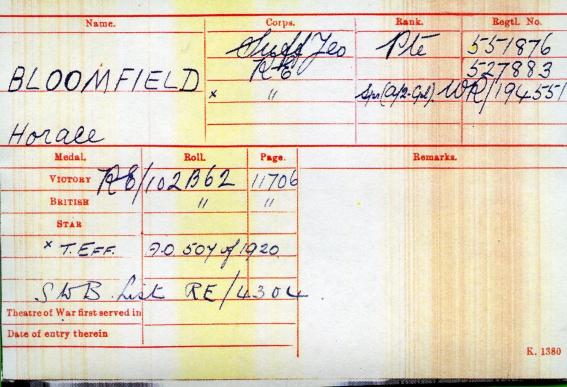 Name. Corps. Rank. Regtl. No.
Suff Yeo Pte 551876
BLOOMFIELD RE 527883
x " Spr (A/2-Cpl). WR/194551
Horace
Medal. Roll. Page. Remarks.
VICTORY RE/102B62 11706
BRITISH " "
STAR
x T. EFF. A.O. 504 of 1920.
SWB List RE/4304.
Theatre of War first served in
Date of entry therein
K. 1380